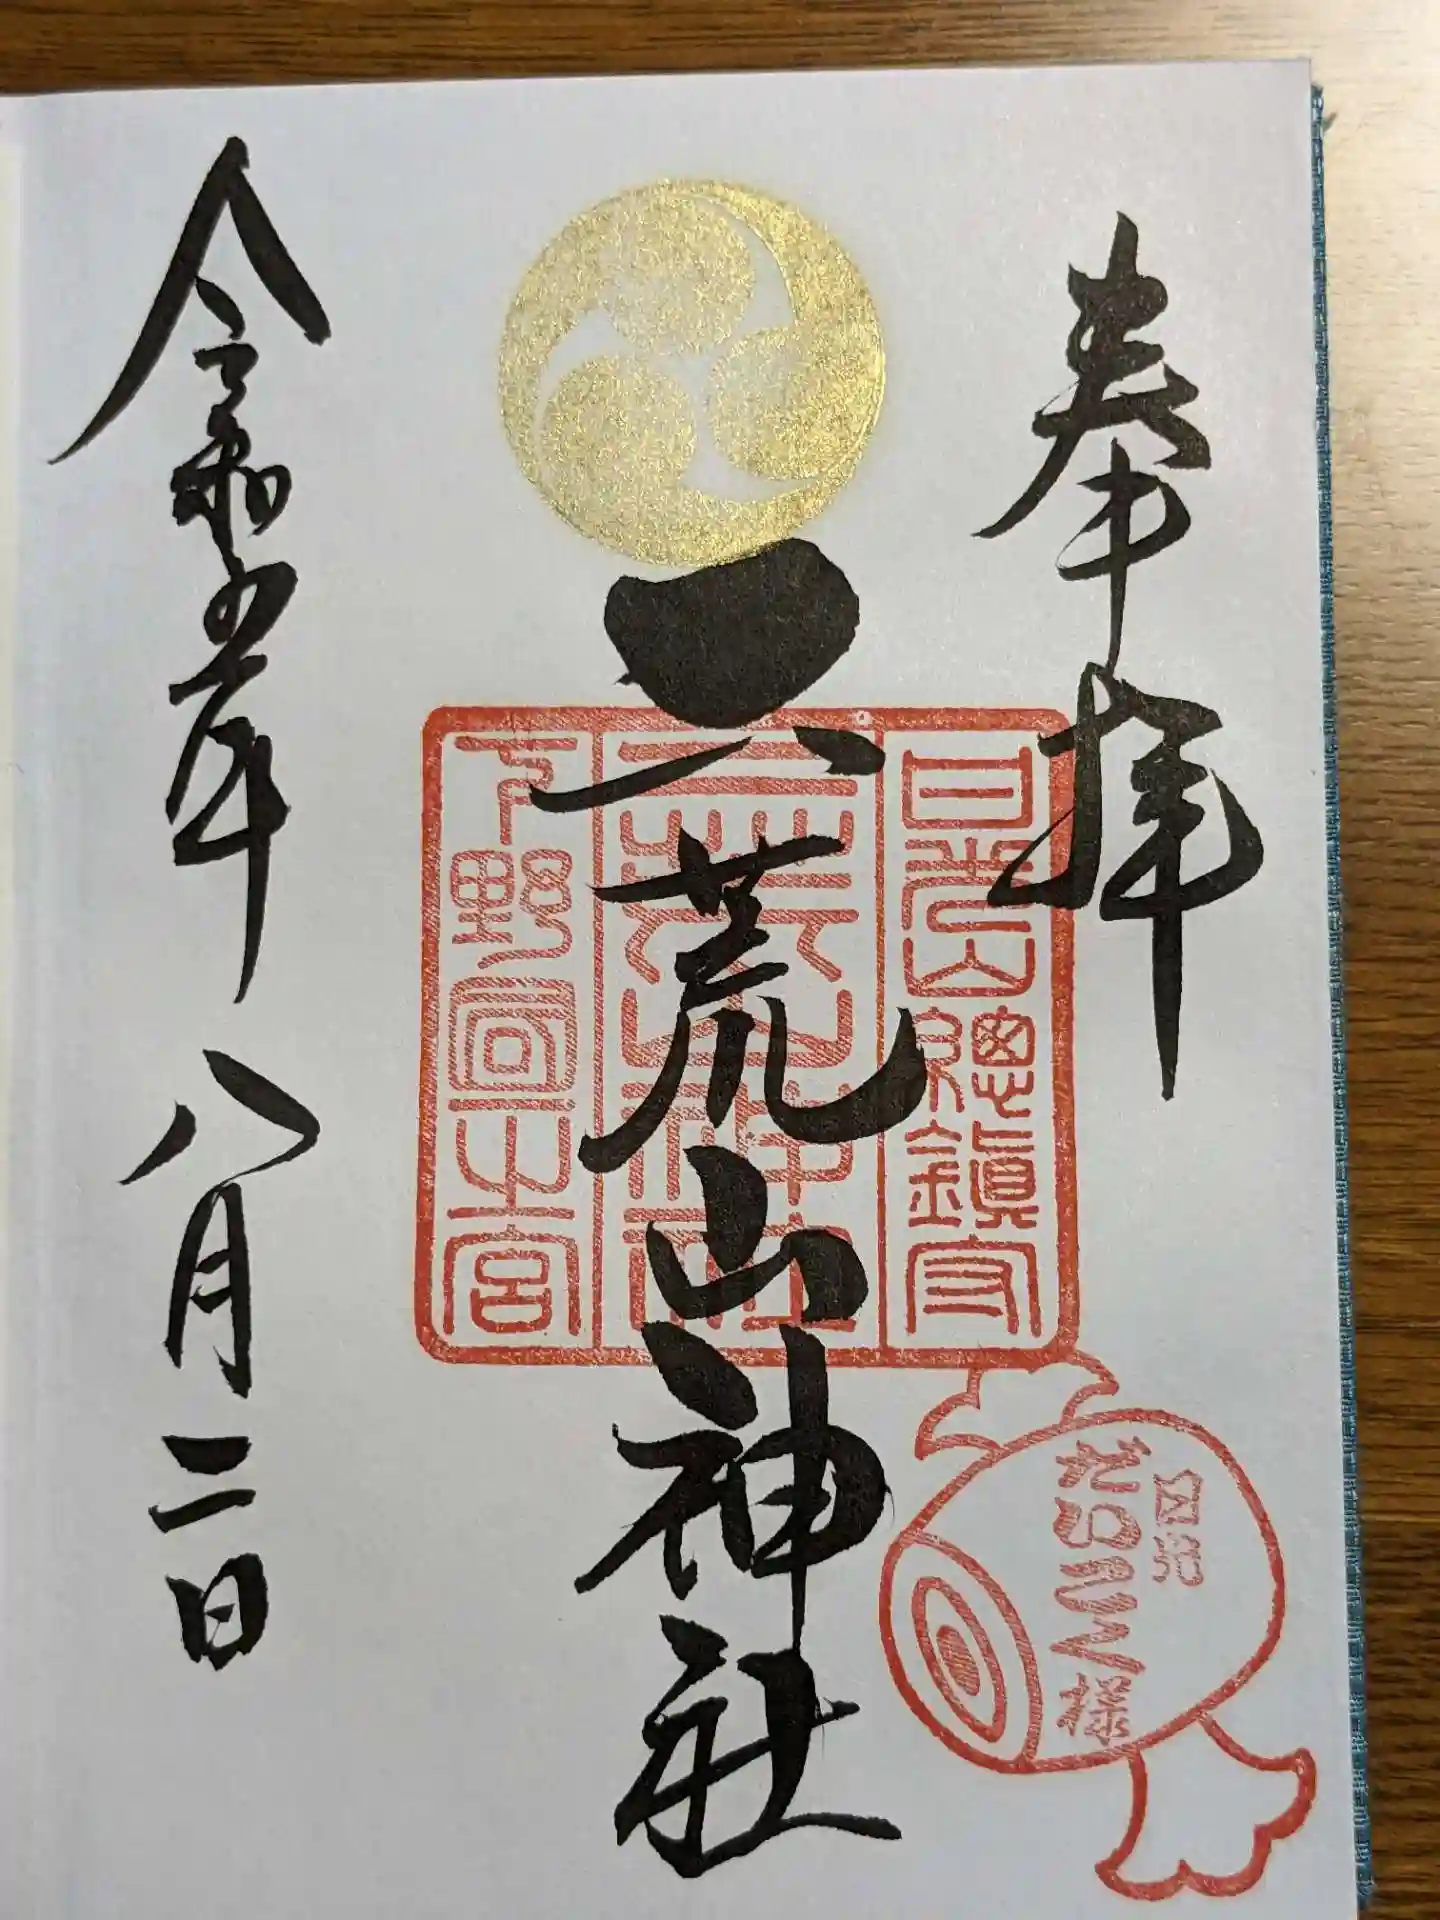 奉拝
日光山總鎮守
二荒山神社
下野國一宮
二荒山神社
令和五年 八月二日
日光
だいこく様